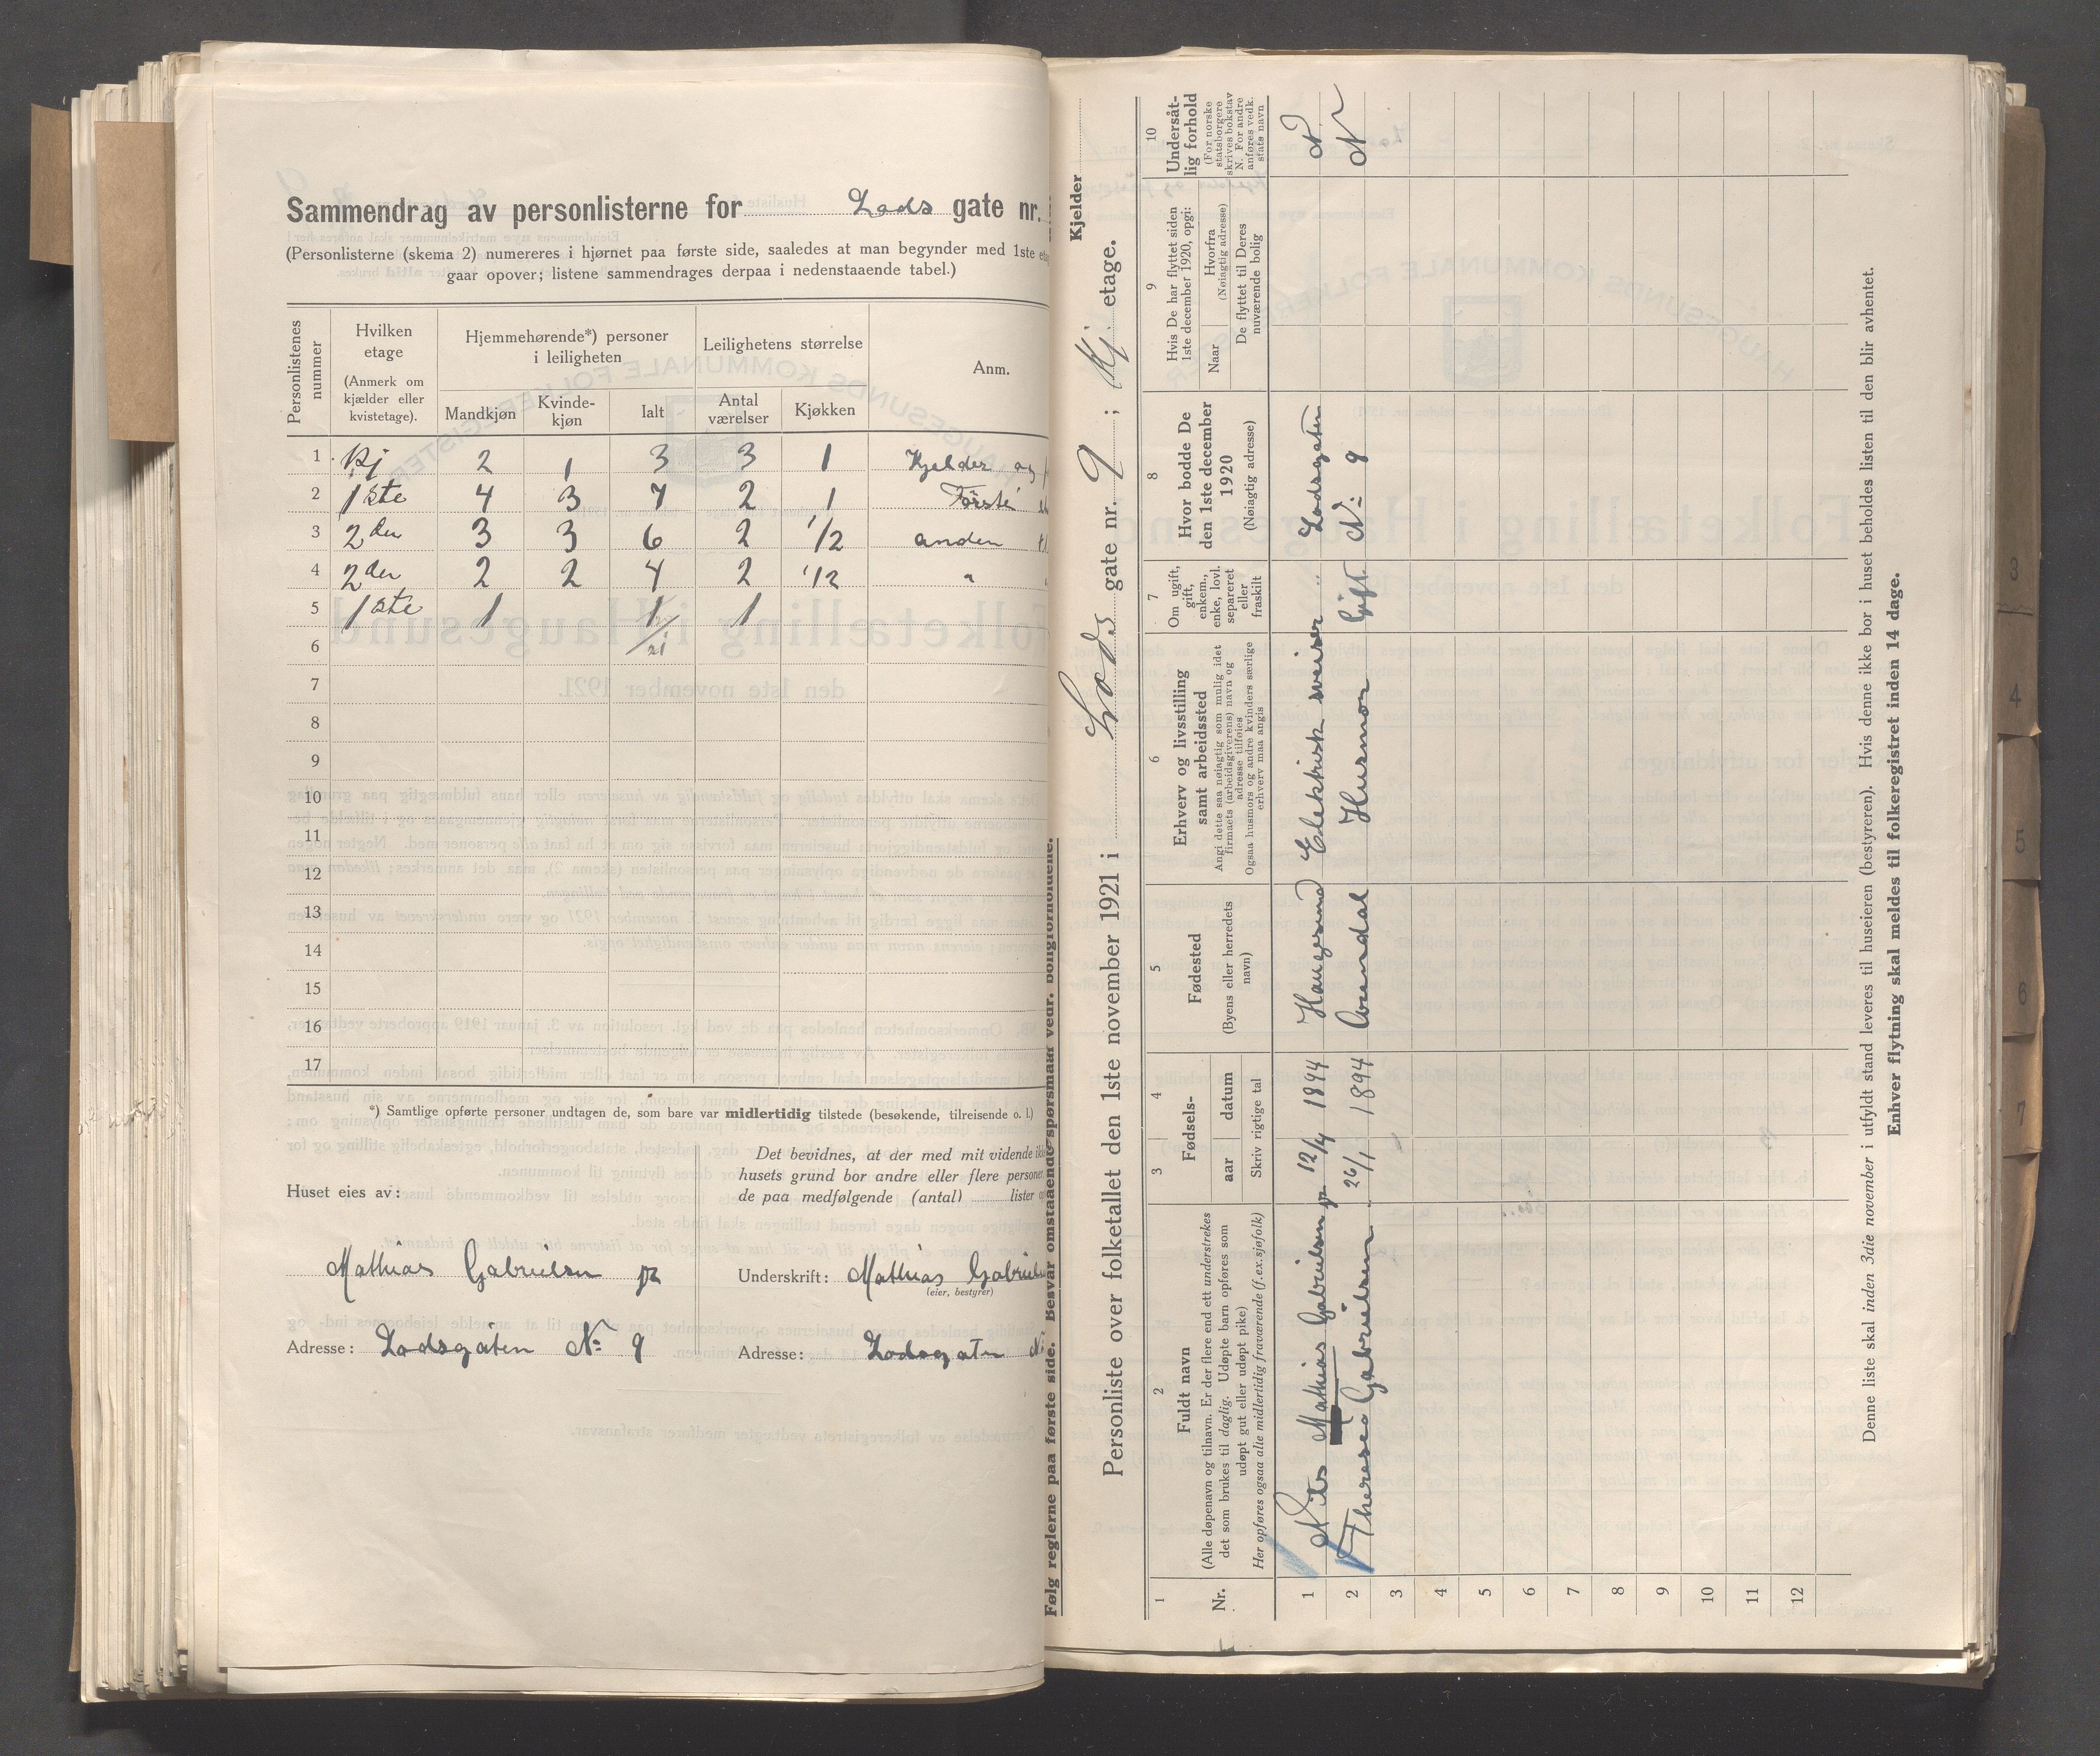 Sammendrag av personlisterne for Lods gate nr.
(Personlisterne (skema 2) numereres i hjørnet paa første side, saaledes at man begynder med 1ste
gaar opover; listene sammendrages derpaa i nedenstaaende tabel.)
Personlistenes nummer
Hvilken etage
(Anmerk om kjælder eller kvistetage).
Hjemmehørende*) personer i leiligheten
Mandkjøn
Kvinde-kjøn
Ialt
Leilighetens størrelse
Antal værelser
Kjøkken
Anm.
1 Kj 2 1 3 3 1 Kjelder og
2 1ste 4 3 7 2 1 Første
3 2den 3 3 6 2 1/2 anden
4 2den 2 2 4 2 1/2 "
5 1ste 1 1 1
6 21
7
8
9
10
11
12
13
14
15
16
17
*) Samtlige opførte personer undtagen de, som bare var midlertidig tilstede (besøkende, tilreisende o. l.)
Huset eies av:
Mathias Gabrielsen jr
Adresse: Lodsgaten No 9
Det bevidnes, at der med mit vidende
husets grund bor andre eller flere personer
de paa medfølgende (antal) lister
Underskrift: Mathias
(eier, bestyrer)
Adresse: Lodsgaten
Følg reglerne paa første side. Besvar omstaaende spørsmaal vedr. boligforholdene.
Kjelder
Personliste over folketallet den 1ste november 1921 i Lods gate nr. 9; Kj etage.
1
Nr.
2
Fuldt navn
(Alle døpenavn og tilnavn. Er der flere end ett understrekes
det som brukes til daglig. Udøpte barn opføres som
udøpt gut eller udøpt pike)
Her opføres ogsaa alle midlertidig fraværende (f.ex. sjøfolk)
3 4
Fødsels-
aar datum
Skriv rigtige tal
5
Fødested
(Byens eller herredets navn)
6
Erhverv og livsstilling
samt arbeidssted
Angi dette saa nøiagtig som mulig idet
firmaets (arbeidsgiverens) navn og
adresse tilføies
Ogsaa husmors og andre kvinders særlige
erhverv maa angis
7
Om ugift,
gift,
enkem.,
enke, lovl.
separeret
eller
fraskilt
8
Hvor bodde De
den 1ste december
1920
(Nøiagtig adresse)
9
Hvis De har flyttet siden
1ste december 1920, opgi:
Naar
Hvorfra
(Nøiagtig adresse)
De flyttet til Deres
nuværende bolig
10
Undersåt-
lig forhold
(For norske
statsborgere
skrives bokstav
N. For andre
anføres vedk.
stats navn
1 Nils Mathias Gabrielsen jr 12/4 1894 Haugesund Elektrisk sveiser " Lodsgaten N
2 Therese Gabrielsen 26/1 1894 Gift No 9 N
Husmor
3
4
5
6
7
8
9
10
11
12
Denne liste skal inden 3die november i utfyldt stand leveres til huseieren (bestyreren). Hvis denne ikke bor i huset beholdes listen til den blir avhentet.
Enhver flytning skal meldes til folkeregistret inden 14 dage.
3
4
5
6
7